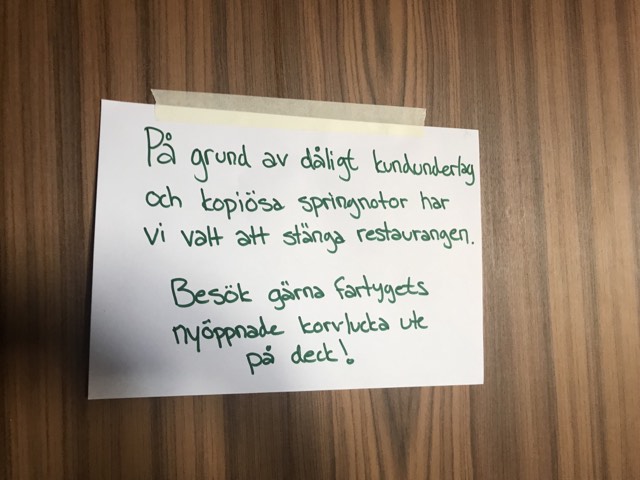 På grund av dåligt kundunderlag
och kopiösa springnotor har
vi valt att stänga restaurangen.
Besök gärna fartygets
nyöppnade korvlucka ute
på deck!